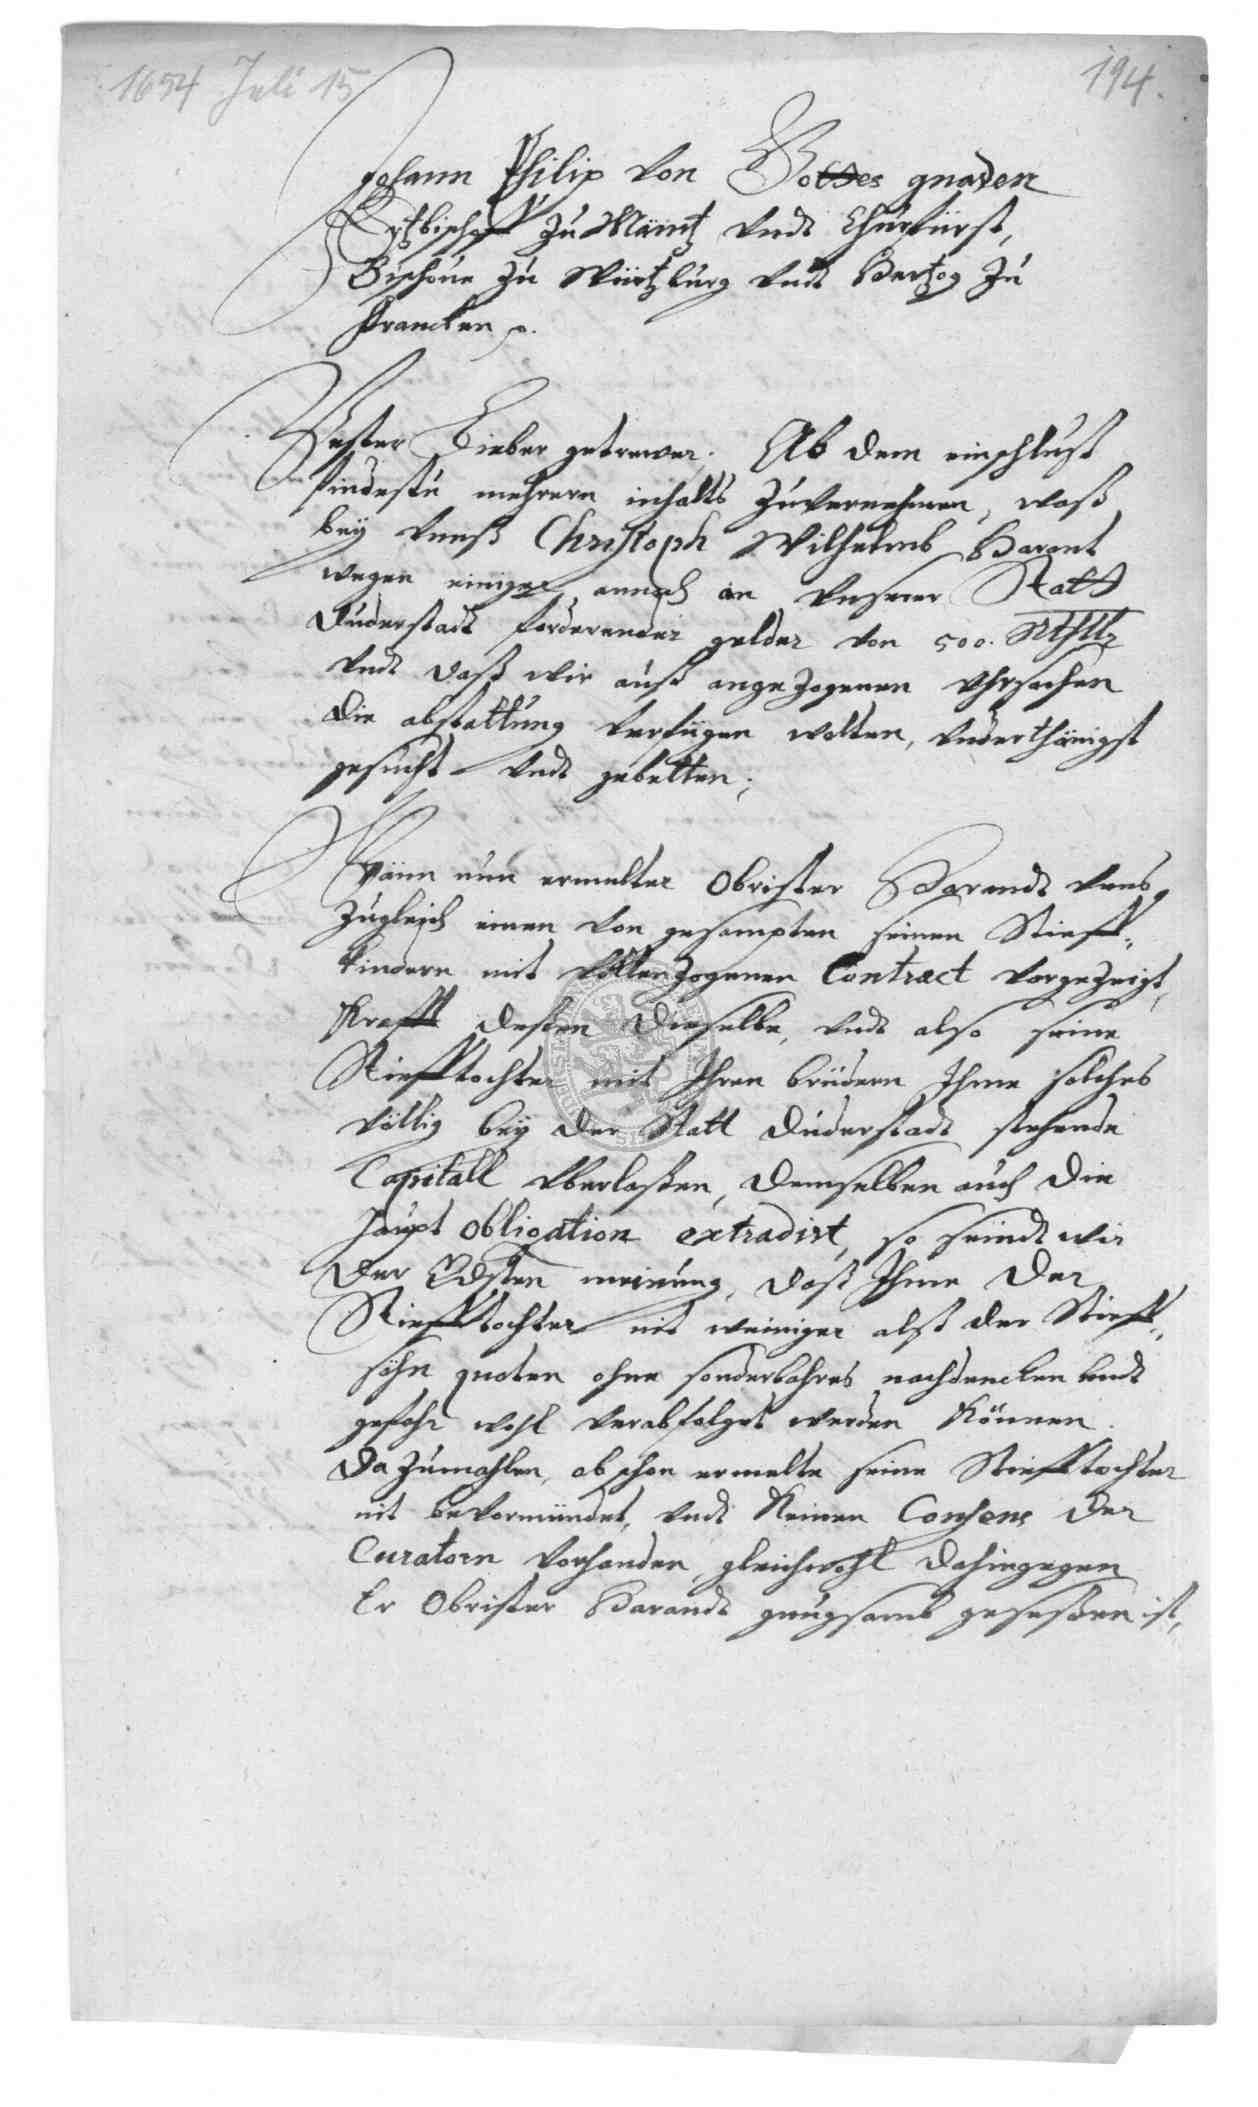 1654 Juli 15
194.
Johann Philip von Gottes gnaden
Ertzbischoff zu Mäintz undt Churfürst,
Bischove zu Würtzburg undt Hertzog zu
Francken p.
Vester Lieber getrewer. Ab dem einschluß
findestu mehrern inhalts zuvernehmen, waß
bey unnß Christoph Wilhelmb Harant
wegen einiger annoch an unserer Statt
Duderstadt forderender gelder von 500. Rthlr
undt daß wir auß angezogenen uhrsachen
die abstattung verfügen wolten, underthänigst
gesucht undt gebetten;
Wann nun ermelter Obrister Harandt unns
zugleich einen von gesampten seinen Stieff-
kindern mit vollenzogenen Contract vorgezeigt,
Krafft deßen dieselbe, undt also seine
Stiefftochter mit Ihren brüdern Ihme solches
völlig bey der Statt Duderstadt stehende
Capitall überlaßen, demselben auch die
haupt obligation extradirt, so seindt wir
der meinung, daß Ihme der
Stiefftochter nit weiniger alß der Stieff-
söhn quoten ohne sonderbahres nachdencken undt
gefahr wohl verabfolget werden können.
Da zumahlen, ob schon ermelte seine Stiefftochter
nit bevormündet, undt keinen Consens der
Curatorn vorhanden, gleichwohl dahingegen
Er Obrister Harandt gnugsamb geseßen ist,